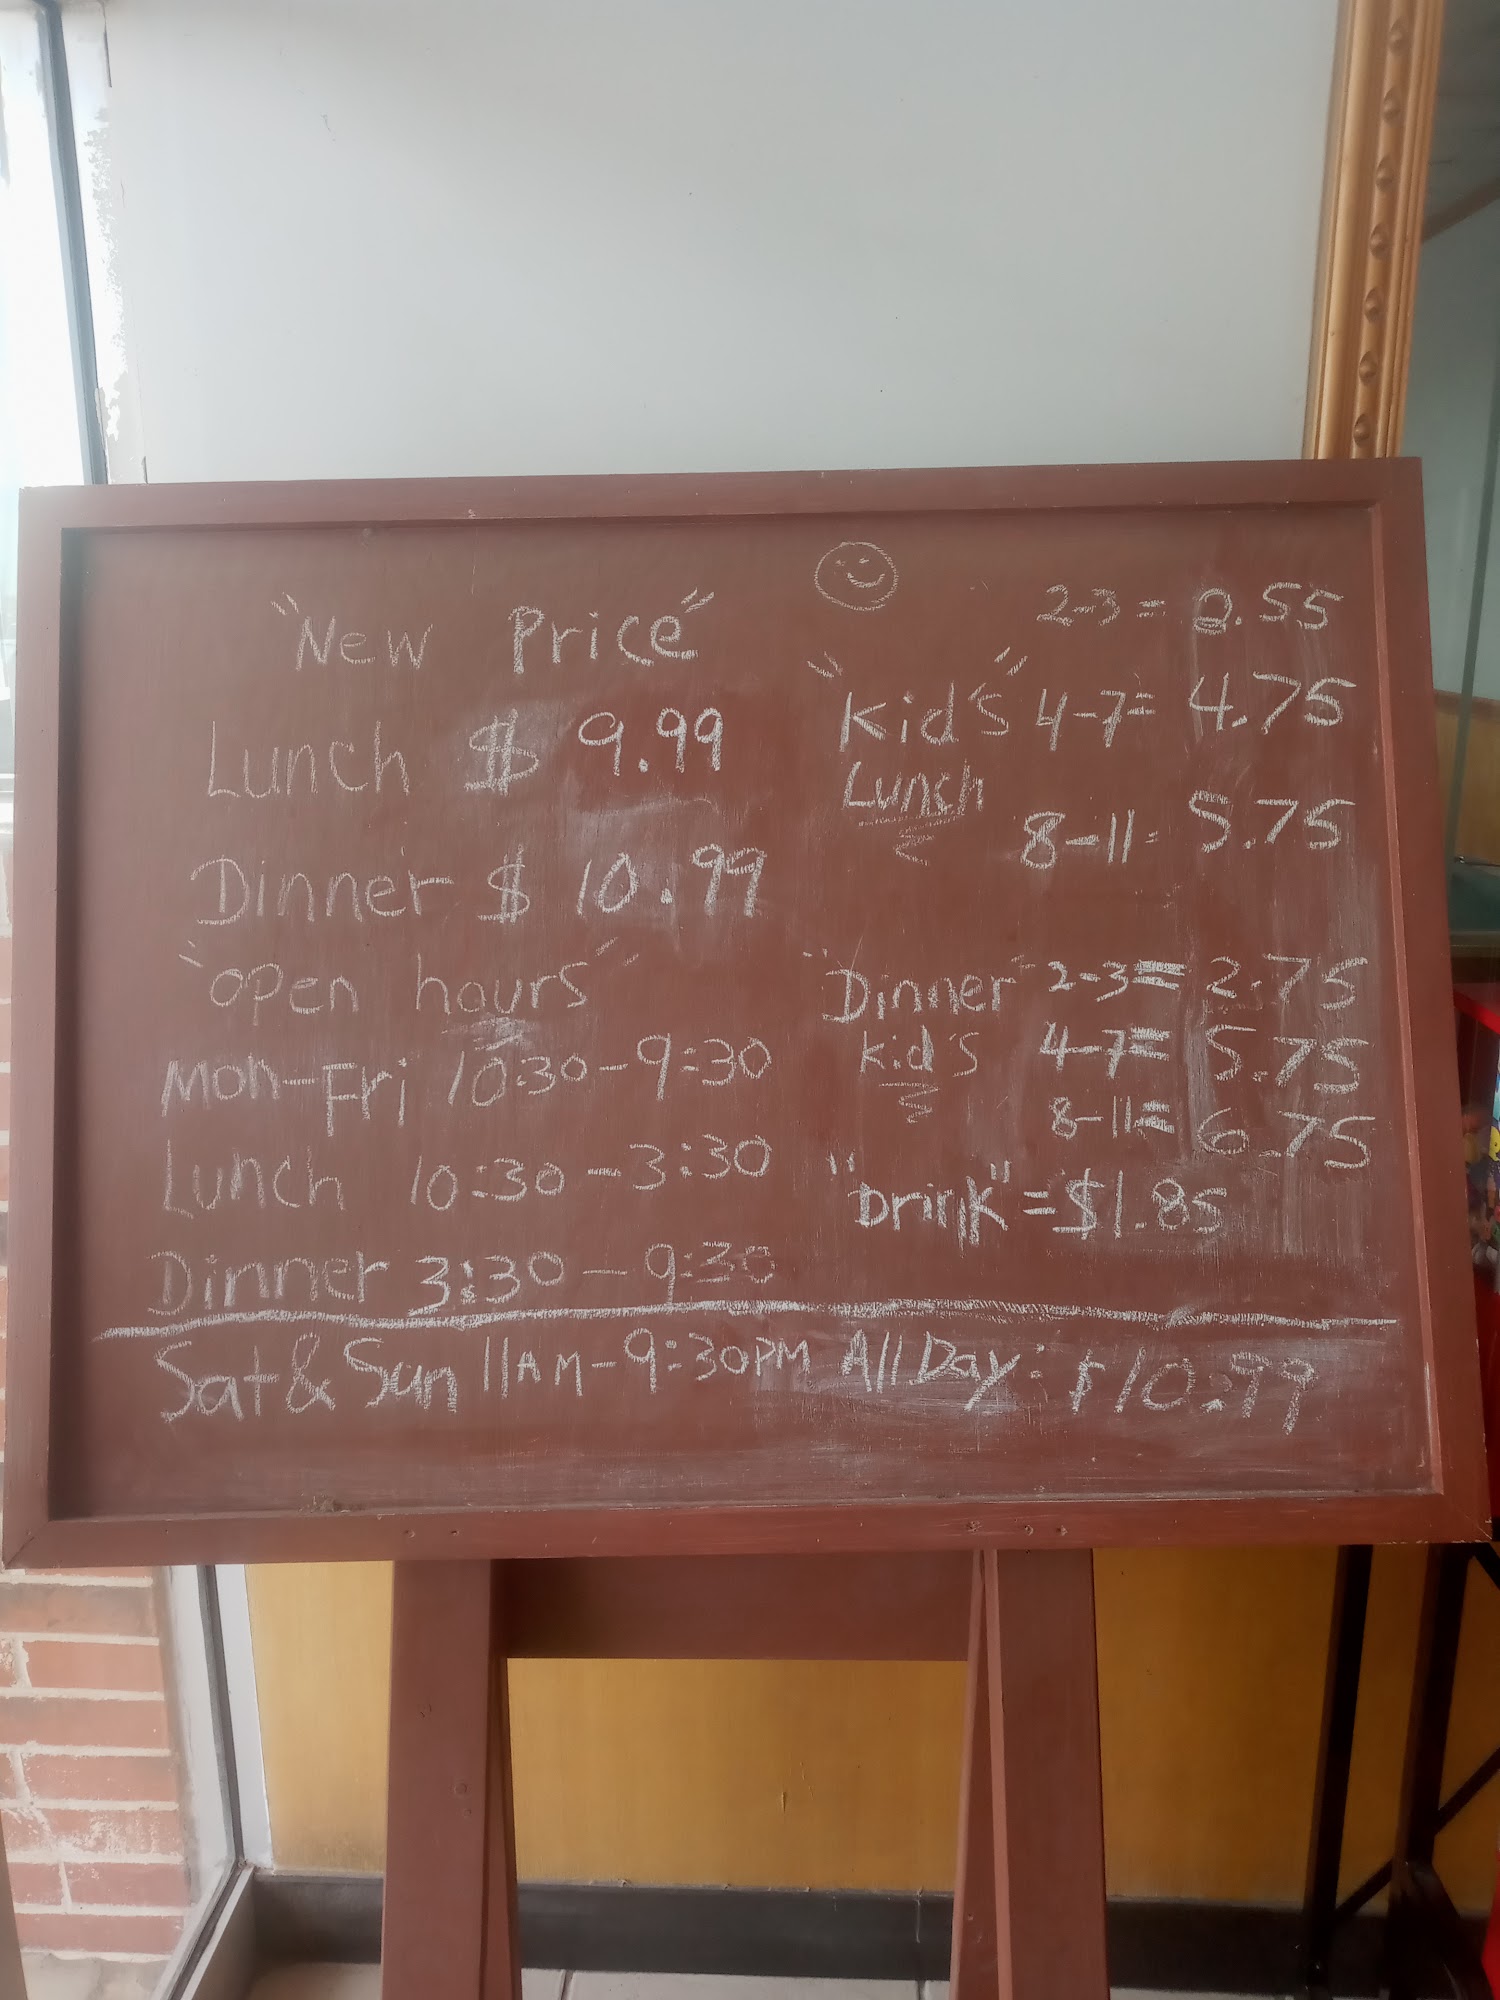 "New Price"
Lunch $ 9.99
Dinner $ 10.99
"open hours"
Mon-Fri 10:30-9:30
Lunch 10:30-3:30
Dinner 3:30-9:30
2-3=
"Kid's" 4-7= 4.75
Lunch
8-11= 5.75
"Dinner" 2-3= 2.75
Kid's 4-7= 5.75
8-11= 6.75
"Drink" = $1.85
Sat & Sun 11AM-9:30PM All Day: $10.99